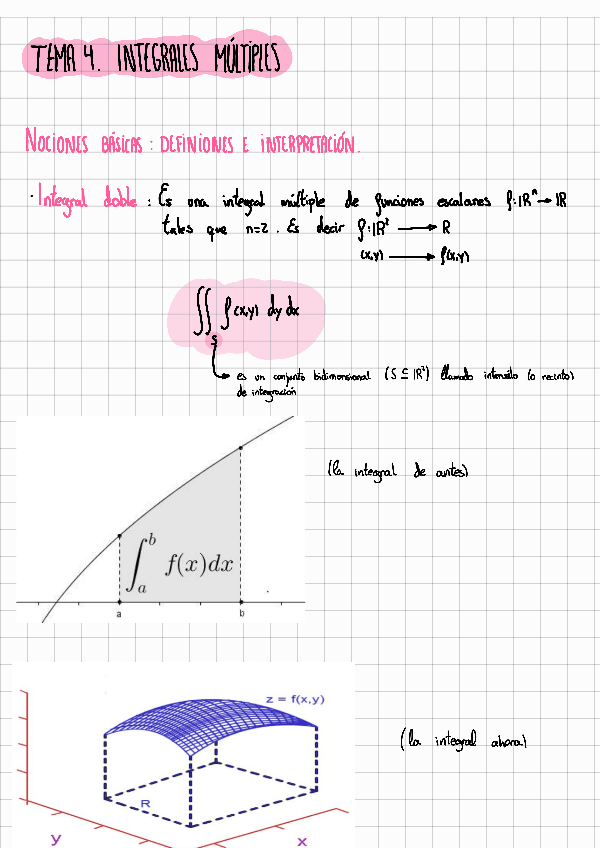 TEMA 4. INTEGRALES MÚLTIPLES
NOCIONES BÁSICAS: DEFINIONES E INTERPRETACIÓN.
· Integral doble: Es una integral múltiple de funciones escalares f: ℝⁿ → ℝ
tales que n=2. Es decir f: ℝ² → R
(x,y) → f(x,y)
∬_S f(x,y) dy dx
es un conjunto bidimensional (S ⊆ ℝ²) llamado intervalo (o recinto)
de integración
(la integral de antes)
∫_a^b f(x)dx
a b
z = f(x,y)
(la integral ahora)
R
y x